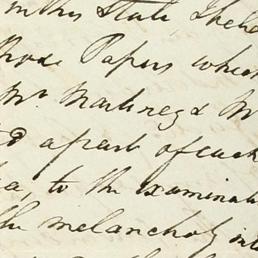 in this State, I he
Papers whic
Mr. Martinez & M
a part of each
to the examinat
the melancholy in